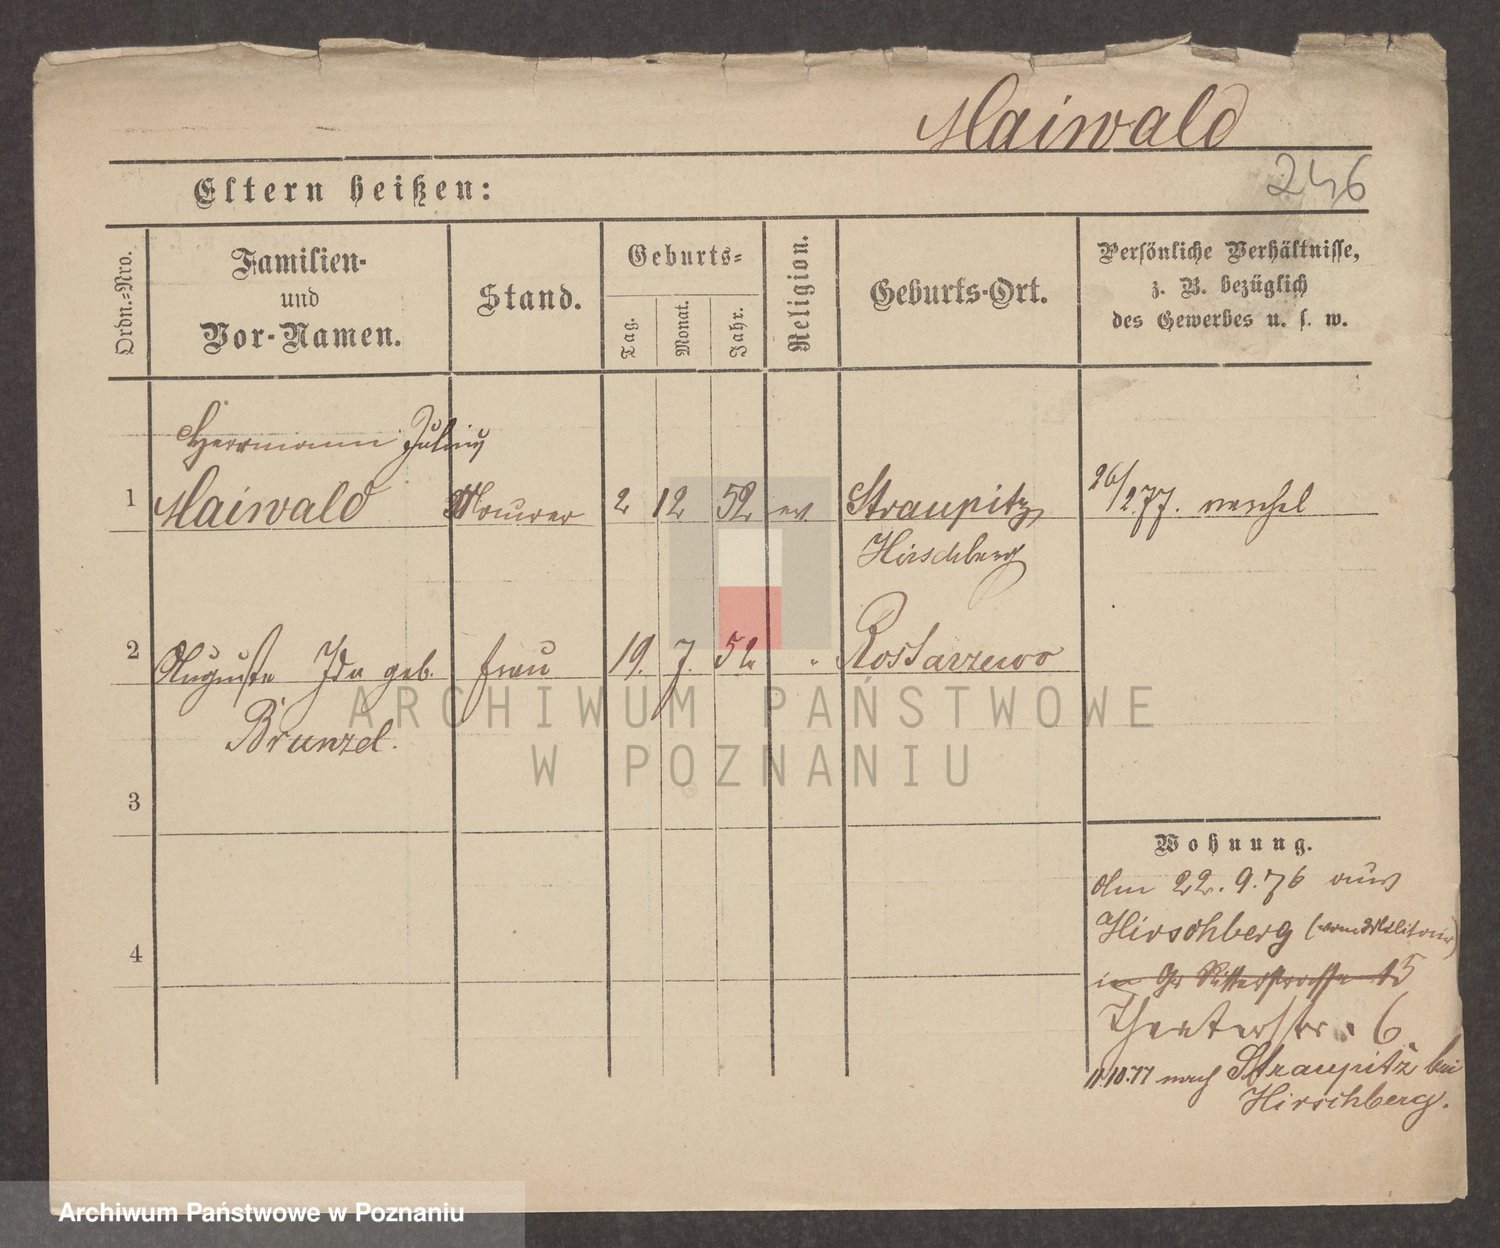 Maiwald
246
Eltern heißen:
Ordn.-Nro.
Familien-
und
Vor-Namen.
Stand.
Geburts-
Tag.
Monat.
Jahr.
Religion.
Geburts-Ort.
Persönliche Verhältnisse,
z. B. bezüglich
des Gewerbes u. s. w.
Herrmann Julius
1 Maiwald Maurer 2 12 52 ev. Straupitz 26/2 77. verehel
Hirschberg
2 Auguste Ida geb. frau 19. 7. 52 " Rostarzewo
Brunzel.
3
Wohnung.
Am 22. 9. 76 aus
Hirschberg (vom Militair)
4
in Gr Ritterstrasse 15
Theaterstr. 6
11/10.77 nach Straupitz bei
Hirschberg.
ARCHIWUM PAŃSTWOWE
W POZNANIU
Archiwum Państwowe w Poznaniu